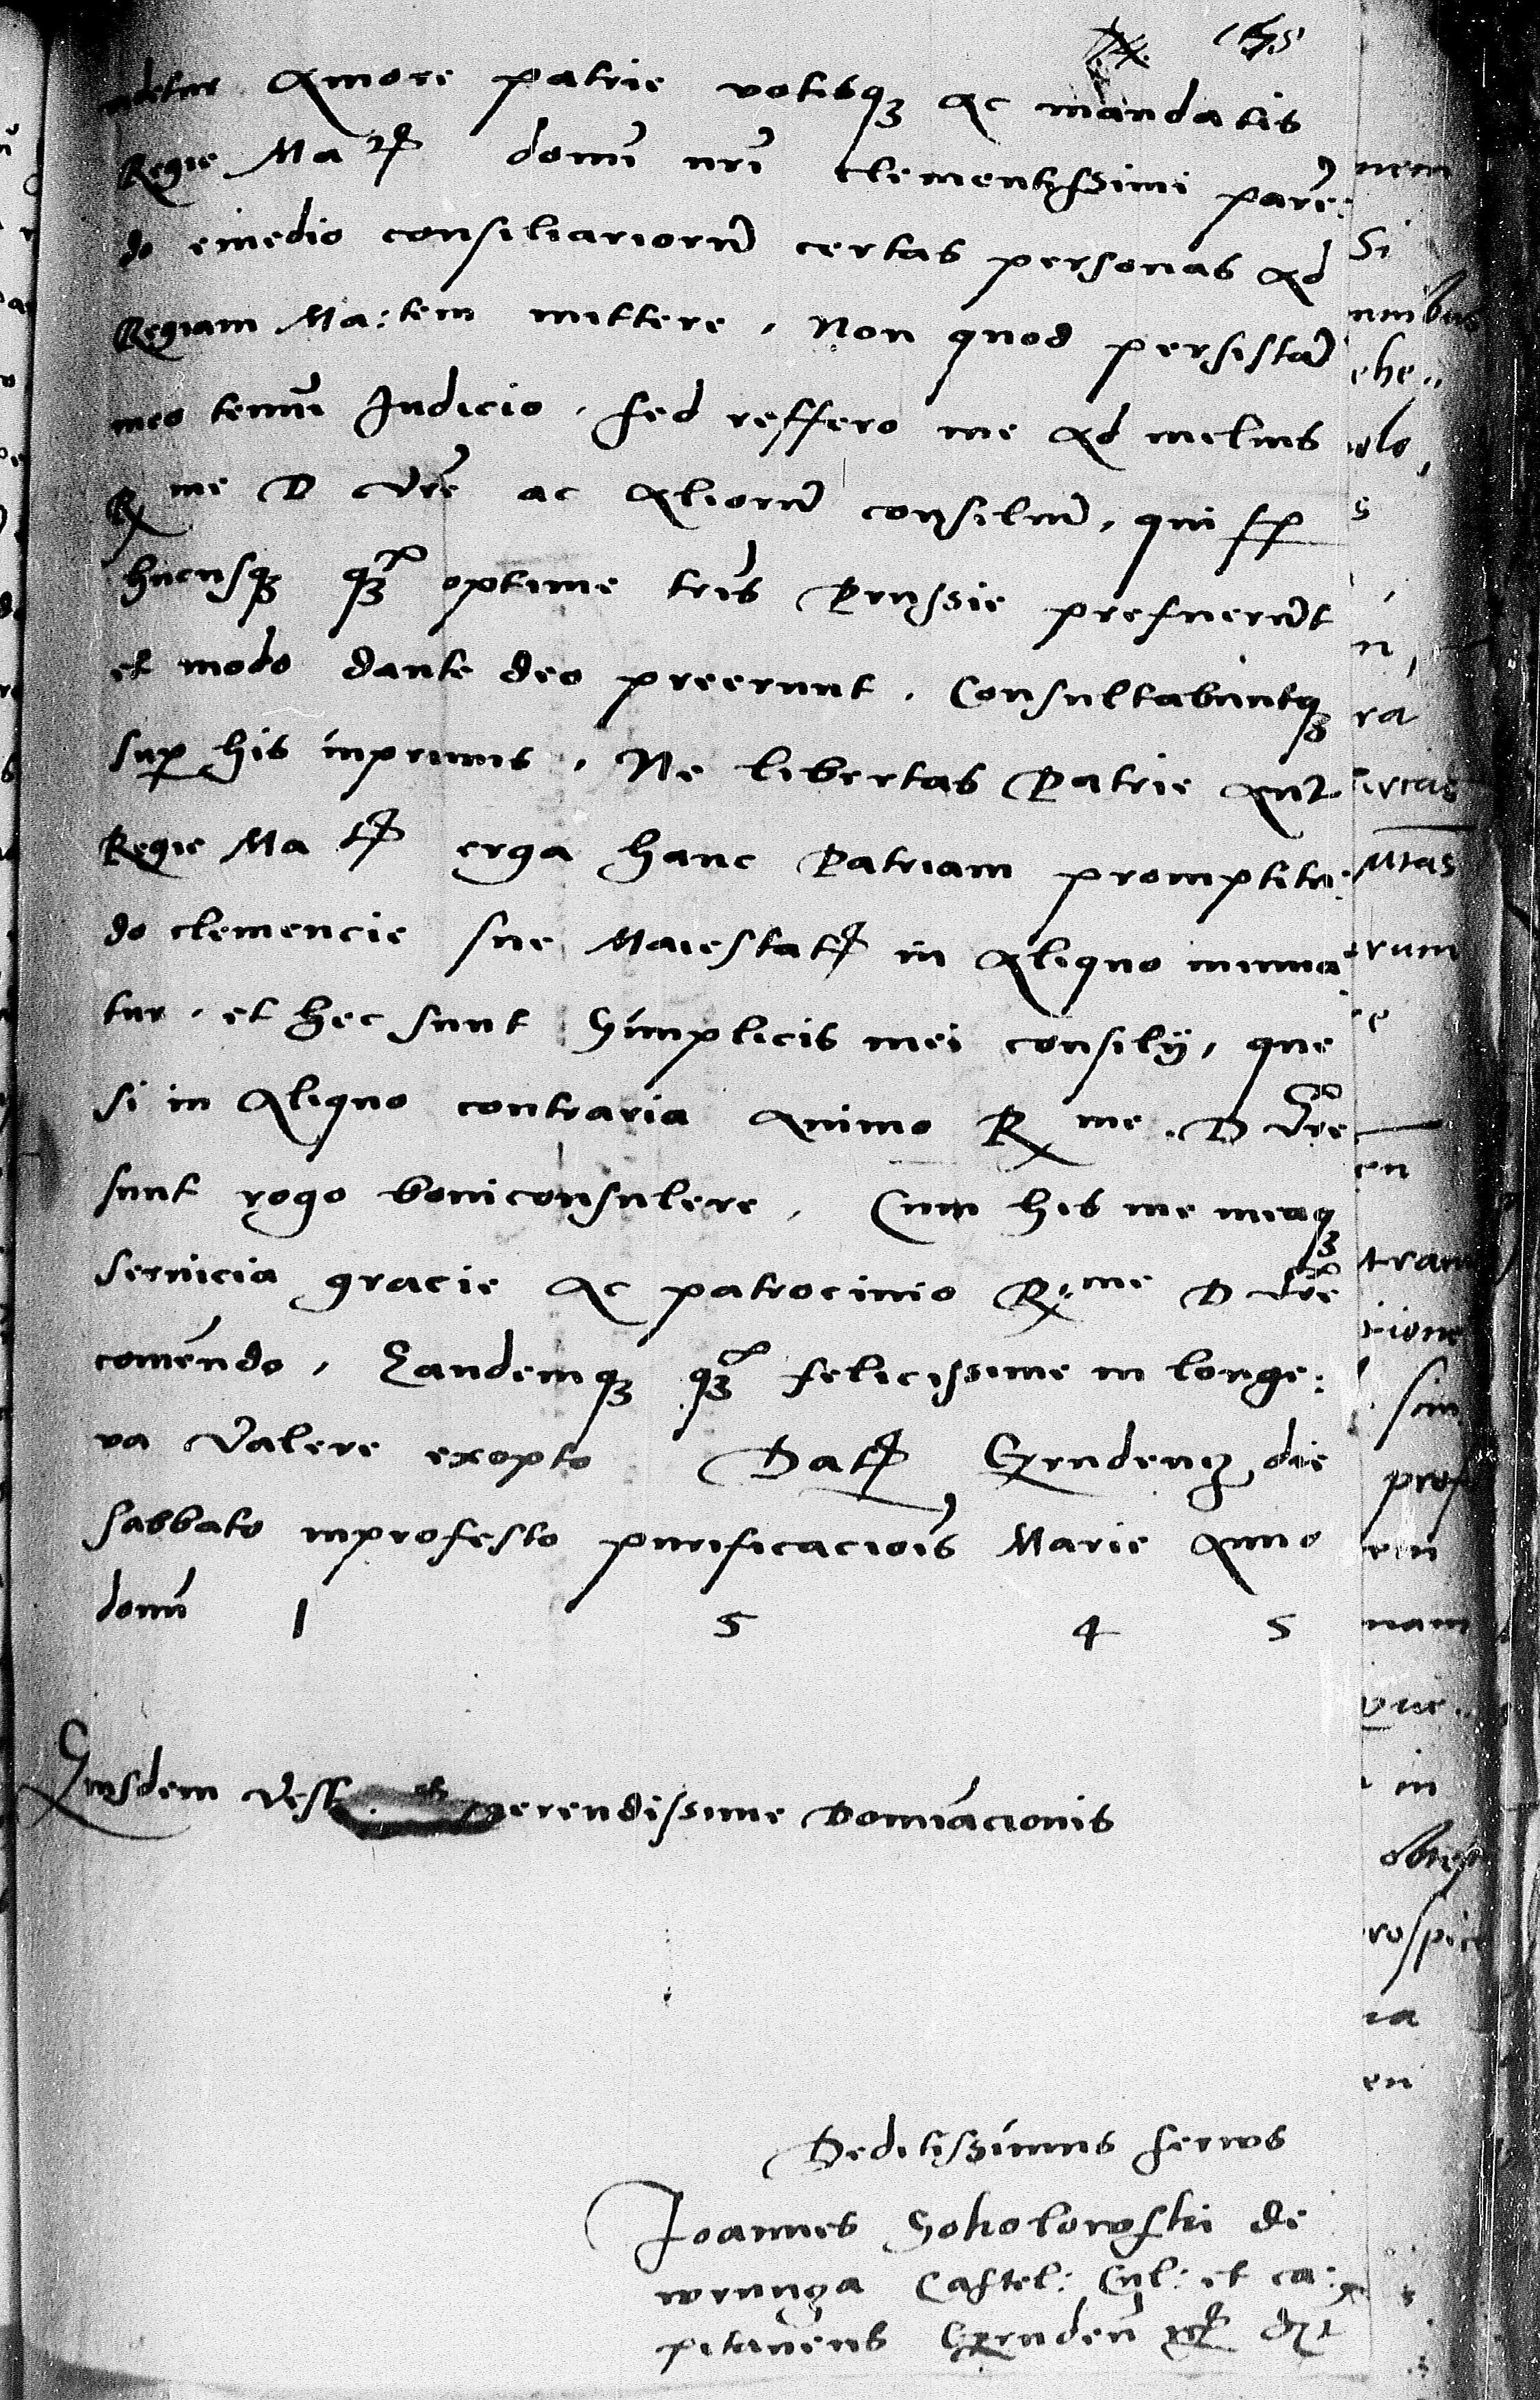 videtur Amore patrie votisq3 Ac mandatis
Regie Matis domi nri clementissimi paren:
do emedio consiliariorum certas personas Ad
Regiam Ma:tem mittere. Non quod persistam
meo tenui Judicio, sed reffero me Ad melius
Rme D vre ac Aliorum consilium, qui
hucusq3 q3 optime tris Prussie prefuerunt
et modo dante deo preerunt. Consultabuntq3
sup his inprimis, Ne libertas Patrie Aut
Regie Matis erga hanc Patriam promptitu:
do clemencie sue Maiestatis in Aliquo minua
tur. et hec sunt Simplicis mei consilij, que
si in Aliquo contraria Animo Rme. D vre
sunt rogo boniconsulere. Cum his me meaq3
servicia gracie Ac patrocinio R:me D vre
comendo, Eandemq3 q3 felicissime in longe:
va valere exopto Datis Grudencz die
sabbato inprofesto purificaciois Marie Anno
domi 1 5 4 5
Eiusdem dominacionis
Deditissimus servus
Joannes Sokolowski de
wrunza Castel: Cul: et ca:
pitaneus Gruden